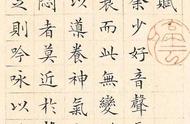 賦
余少好音聲
衰而此無變
以導養神氣
悶者莫近於
足則吟詠以